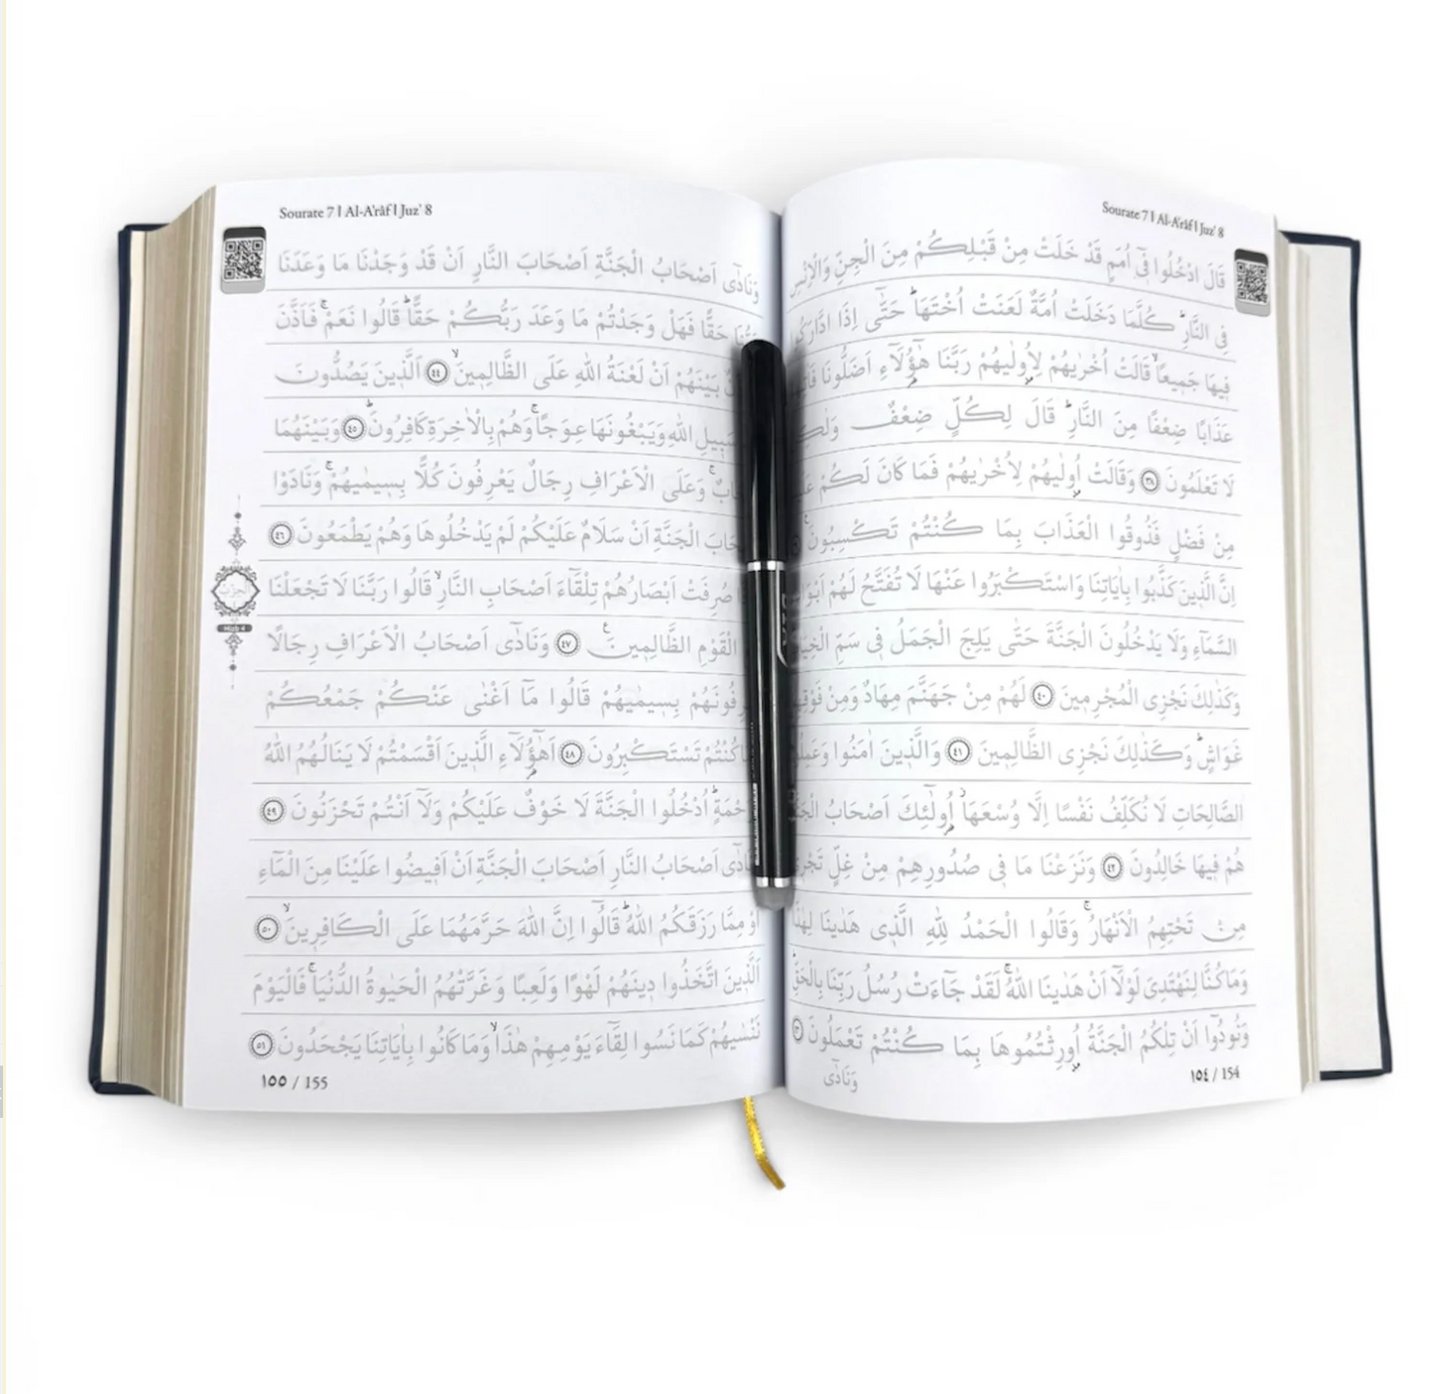 Sourate 7 | Al-A'râf | Juz' 8
قَالَ ادْخُلُوا فِٓى اُمَمٍ قَدْ خَلَتْ مِنْ قَبْلِكُمْ مِنَ الْجِنِّ وَالْاِنْسِ
فِى النَّارِۜ كُلَّمَا دَخَلَتْ اُمَّةٌ لَعَنَتْ اُخْتَهَاۜ حَتّٰٓى اِذَا ادَّارَكُوا
فِيهَا جَمِيعًاۙ قَالَتْ اُخْرٰيهُمْ لِاُو۫لٰيهُمْ رَبَّنَا هٰٓؤُ۬لَٓاءِ اَضَلُّونَا
عَذَابًا ضِعْفًا مِنَ النَّارِۜ قَالَ لِكُلٍّ ضِعْفٌ
لَا تَعْلَمُونَ ﴿٣٨﴾ وَقَالَتْ اُو۫لٰيهُمْ لِاُخْرٰيهُمْ فَمَا كَانَ لَكُمْ
مِنْ فَضْلٍ فَذُوقُوا الْعَذَابَ بِمَا كُنْتُمْ تَكْسِبُونَ۟
اِنَّ الَّذِينَ كَذَّبُوا بِاٰيَاتِنَا وَاسْتَكْبَرُوا عَنْهَا لَا تُفَتَّحُ لَهُمْ
السَّمَٓاءِ وَلَا يَدْخُلُونَ الْجَنَّةَ حَتّٰى يَلِجَ الْجَمَلُ فِى سَمِّ
وَكَذٰلِكَ نَجْزِى الْمُجْرِمِينَ ﴿٤٠﴾ لَهُمْ مِنْ جَهَنَّمَ مِهَادٌ وَمِنْ
غَوَاشٍۜ وَكَذٰلِكَ نَجْزِى الظَّالِمِينَ ﴿٤١﴾ وَالَّذِينَ اٰمَنُوا
الصَّالِحَاتِ لَا نُكَلِّفُ نَفْسًا اِلَّا وُسْعَهَاۘ اُو۬لٰٓئِكَ اَصْحَابُ
هُمْ فِيهَا خَالِدُونَ ﴿٤٢﴾ وَنَزَعْنَا مَا فِى صُدُورِهِمْ مِنْ غِلٍّ
مِنْ تَحْتِهِمُ الْاَنْهَارُۚ وَقَالُوا الْحَمْدُ لِلّٰهِ الَّذِى هَدٰينَا لِهٰذَا
وَمَا كُنَّا لِنَهْتَدِىَ لَوْلَٓا اَنْ هَدٰينَا اللّٰهُۚ لَقَدْ جَٓاءَتْ رُسُلُ رَبِّنَا بِالْحَقِّ
وَنُودُٓوا اَنْ تِلْكُمُ الْجَنَّةُ اُو۫رِثْتُمُوهَا بِمَا كُنْتُمْ تَعْمَلُونَ
وَنَادٰٓى
١٥٤ / 154
Sourate 7 | Al-A'râf | Juz' 8
وَنَادٰٓى اَصْحَابُ الْجَنَّةِ اَصْحَابَ النَّارِ اَنْ قَدْ وَجَدْنَا مَا وَعَدَنَا
رَبُّنَا حَقًّا فَهَلْ وَجَدْتُمْ مَا وَعَدَ رَبُّكُمْ حَقًّاۜ قَالُوا نَعَمْۚ فَاَذَّنَ
بَيْنَهُمْ اَنْ لَعْنَةُ اللّٰهِ عَلَى الظَّالِمِينَۙ ﴿٤٤﴾ اَلَّذِينَ يَصُدُّونَ
سَبِيلِ اللّٰهِ وَيَبْغُونَهَا عِوَجًاۚ وَهُمْ بِالْاٰخِرَةِ كَافِرُونَۜ ﴿٤٥﴾ وَبَيْنَهُمَا
وَعَلَى الْاَعْرَافِ رِجَالٌ يَعْرِفُونَ كُلًّا بِسِيمٰيهُمْۚ وَنَادَوْا
الْجَنَّةِ اَنْ سَلَامٌ عَلَيْكُمْ لَمْ يَدْخُلُوهَا وَهُمْ يَطْمَعُونَ ﴿٤٦﴾
صُرِفَتْ اَبْصَارُهُمْ تِلْقَٓاءَ اَصْحَابِ النَّارِۙ قَالُوا رَبَّنَا لَا تَجْعَلْنَا
الْقَوْمِ الظَّالِمِينَ۟ ﴿٤٧﴾ وَنَادٰٓى اَصْحَابُ الْاَعْرَافِ رِجَالًا
بِسِيمٰيهُمْ قَالُوا مَٓا اَغْنٰى عَنْكُمْ جَمْعُكُمْ
كُنْتُمْ تَسْتَكْبِرُونَ ﴿٤٨﴾ اَهٰٓؤُ۬لَٓاءِ الَّذِينَ اَقْسَمْتُمْ لَا يَنَالُهُمُ اللّٰهُ
اُدْخُلُوا الْجَنَّةَ لَا خَوْفٌ عَلَيْكُمْ وَلَٓا اَنْتُمْ تَحْزَنُونَ ﴿٤٩﴾
اَصْحَابُ النَّارِ اَصْحَابَ الْجَنَّةِ اَنْ اَفِيضُوا عَلَيْنَا مِنَ الْمَٓاءِ
اَوْ مِمَّا رَزَقَكُمُ اللّٰهُۜ قَالُٓوا اِنَّ اللّٰهَ حَرَّمَهُمَا عَلَى الْكَافِرِينَۙ ﴿٥٠﴾
اَلَّذِينَ اتَّخَذُوا دِينَهُمْ لَهْوًا وَلَعِبًا وَغَرَّتْهُمُ الْحَيٰوةُ الدُّنْيَاۚ فَالْيَوْمَ
نَنْسٰيهُمْ كَمَا نَسُوا لِقَٓاءَ يَوْمِهِمْ هٰذَاۙ وَمَا كَانُوا بِاٰيَاتِنَا يَجْحَدُونَ ﴿٥١﴾
الحزب
Hizb 4
١٥٥ / 155